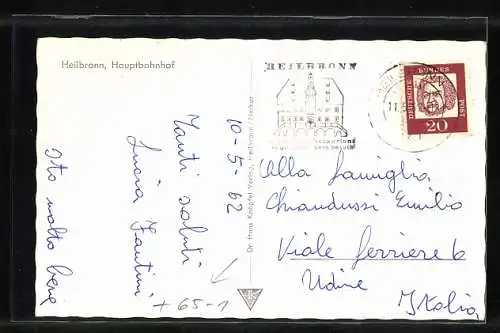 Heilbronn, Hauptbahnhof
10-5-62
Tanti saluti
Lucia Fantini
Sto molto bene
+ 65-1
Dr. Hans Knöpfel Verlag, Heilbronn / Neckar
HEILBRONN
11.5
DEUTSCHE
BUNDES
POST
20
Alla famiglia
Chiandussi Emilio
Viale Ferriere 6
Udine
Italia